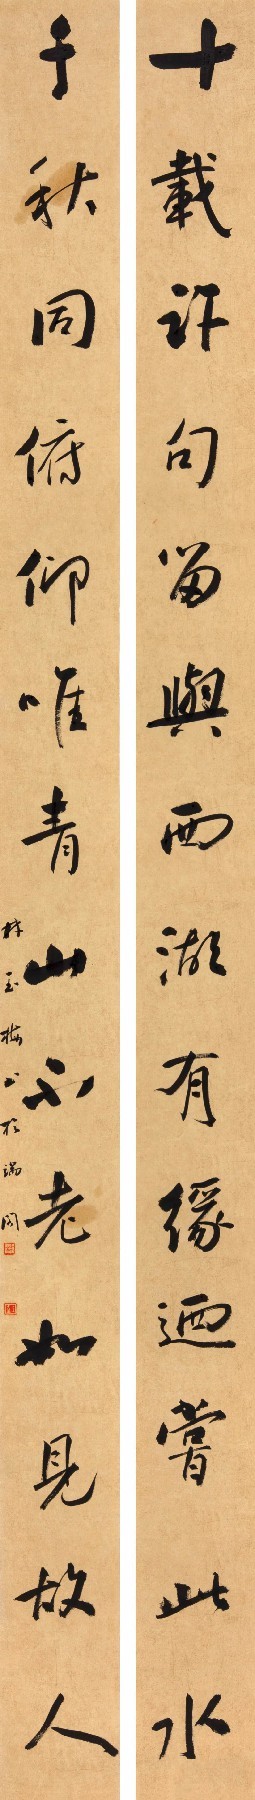 十載許句留與西湖有緣迺嘗此水
千秋同俯仰唯青山不老如見故人
林玉梅书於